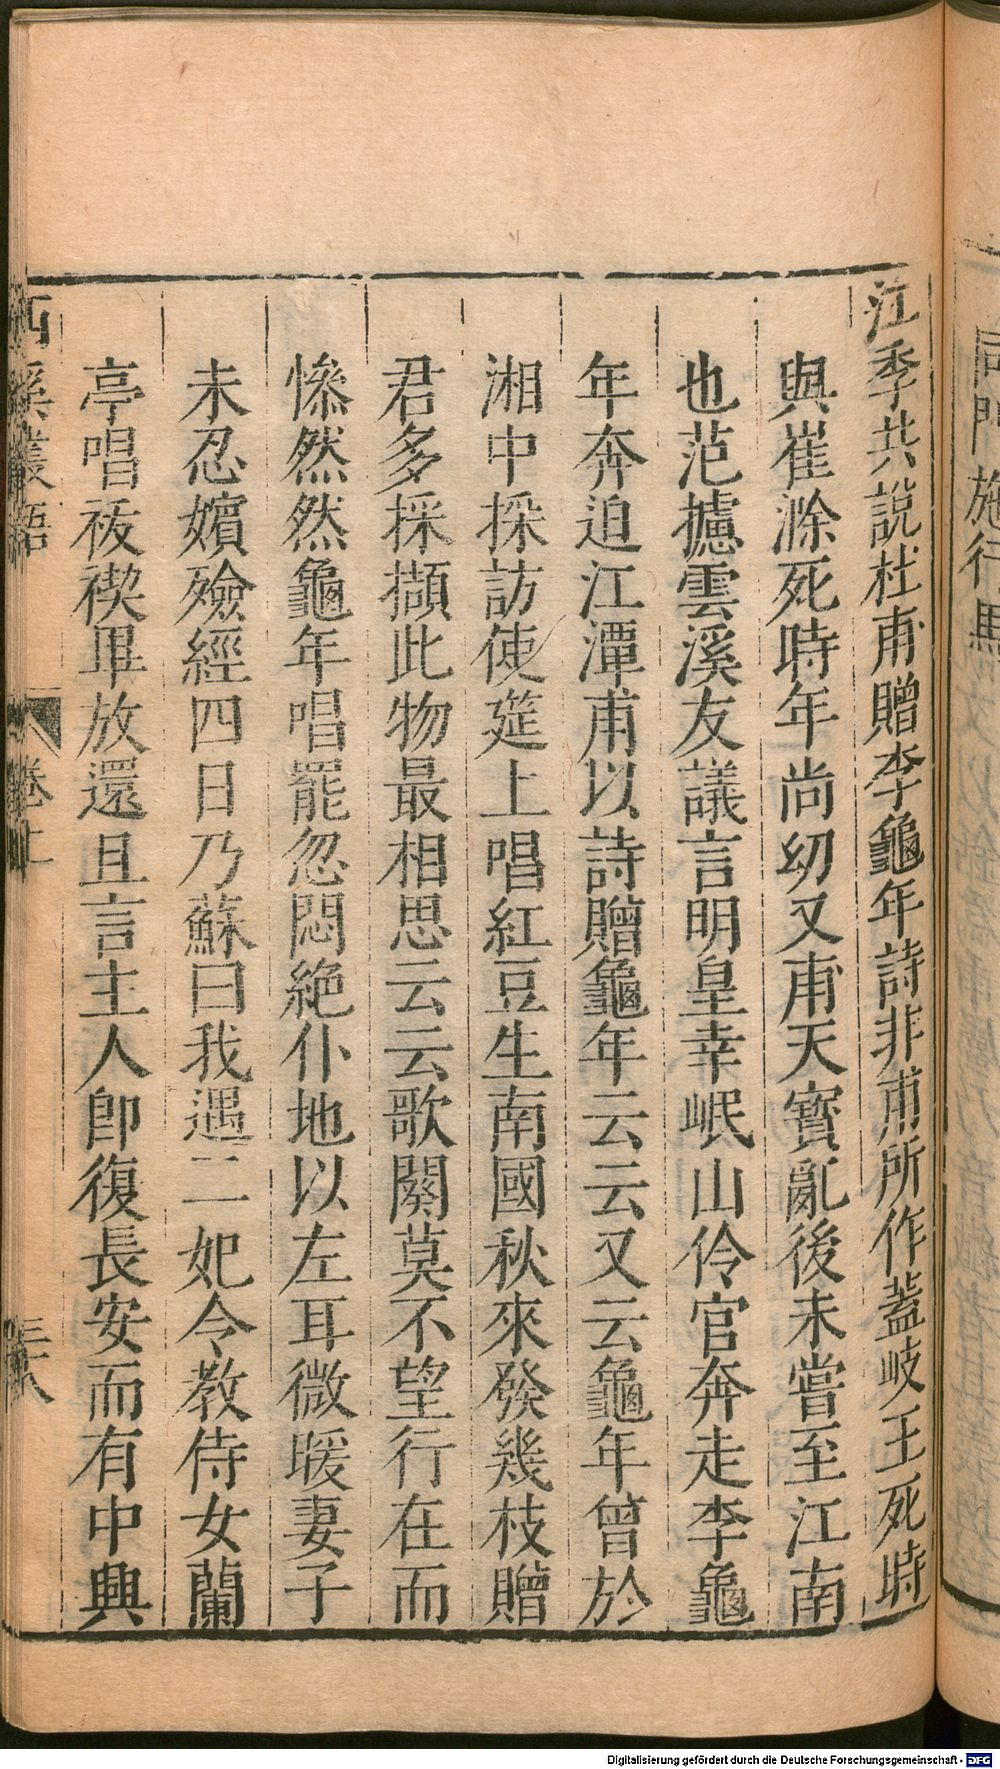 江季共說杜甫贈李龜年詩非甫所作蓋岐王死時
與崔滌死時年尚幼又甫天寶亂後未嘗至江南
也范攄雲溪友議言明皇幸岷山伶官奔走李龜
年奔迫江潭甫以詩贈龜年云云又云龜年曾於
湘中採訪使筵上唱紅豆生南國秋來發幾枝贈
君多採擷此物最相思云云歌闋莫不望行在而
慘然然龜年唱罷忽悶絕仆地以左耳微暖妻子
未忍嬪殮經四日乃蘇曰我遇二妃令教侍女蘭
亭唱祓禊畢放還且言主人即復長安而有中興
西溪叢語 卷上 三六
同門施行馬
Digitalisierung gefördert durch die Deutsche Forschungsgemeinschaft - DFG